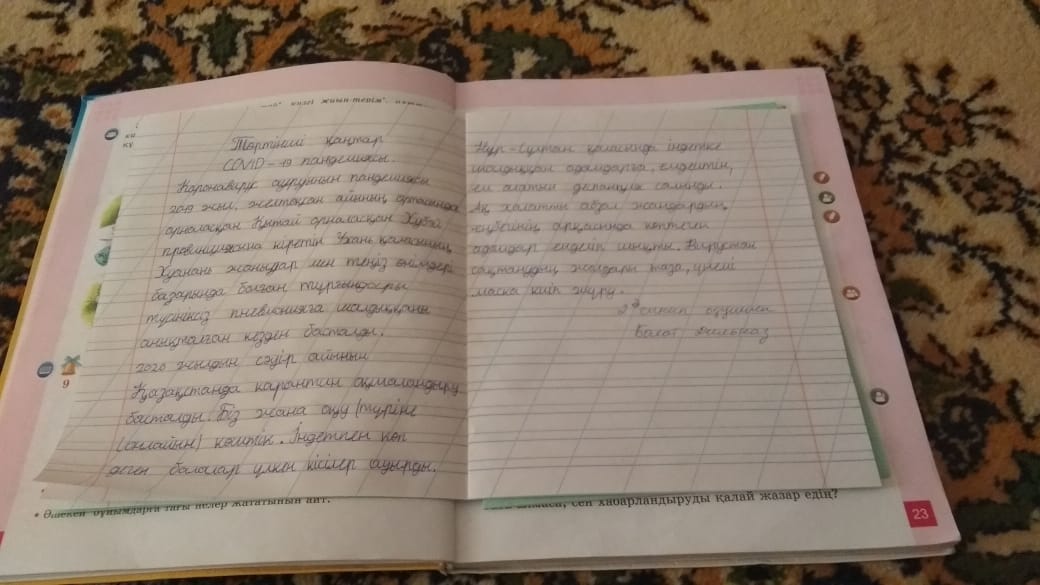 күзгі жиын-терім
Төртінші қаңтар
COVID-19 пандемиясы.
Каронавирус ауруынын пандемиясы
2019 жыл, желтоқсан айынын ортасында
орналасқан Қытай орналасқан Хубэй
провинциясына кіретін Ухань қаласынын,
Хуанань жануарлар мен теңіз өнімдері
базарында болған тұрғындары
түсініксіз пневмонияға шалдыққаны
анықталған кезден басталды.
2020 жылдын сәуір айынын
Қазақстанда карантин ақмаландыру
басталды. Біз жана оқу (түріне
(онлайын) көштік. Індетпен көп
деген балалар үлкен кісілер ауырды.
Нұр-Сұлтан қаласында індетке
шалдыққан адамдарға, емдейтін,
ем алатын салынды.
Ақ халатты абзал жандардың
еңбегінің арқасында көптеген
адамдар емделіп шықты. Вирустан
сақтанудың жолдары таза, үнемі
маска киіп жүру.
2 сынып оқушысы
Болат
9
• Өшекей бұйымдарға тағы нелер жататынын айт.
сен хабарландыруды қалай жазар едің?
23